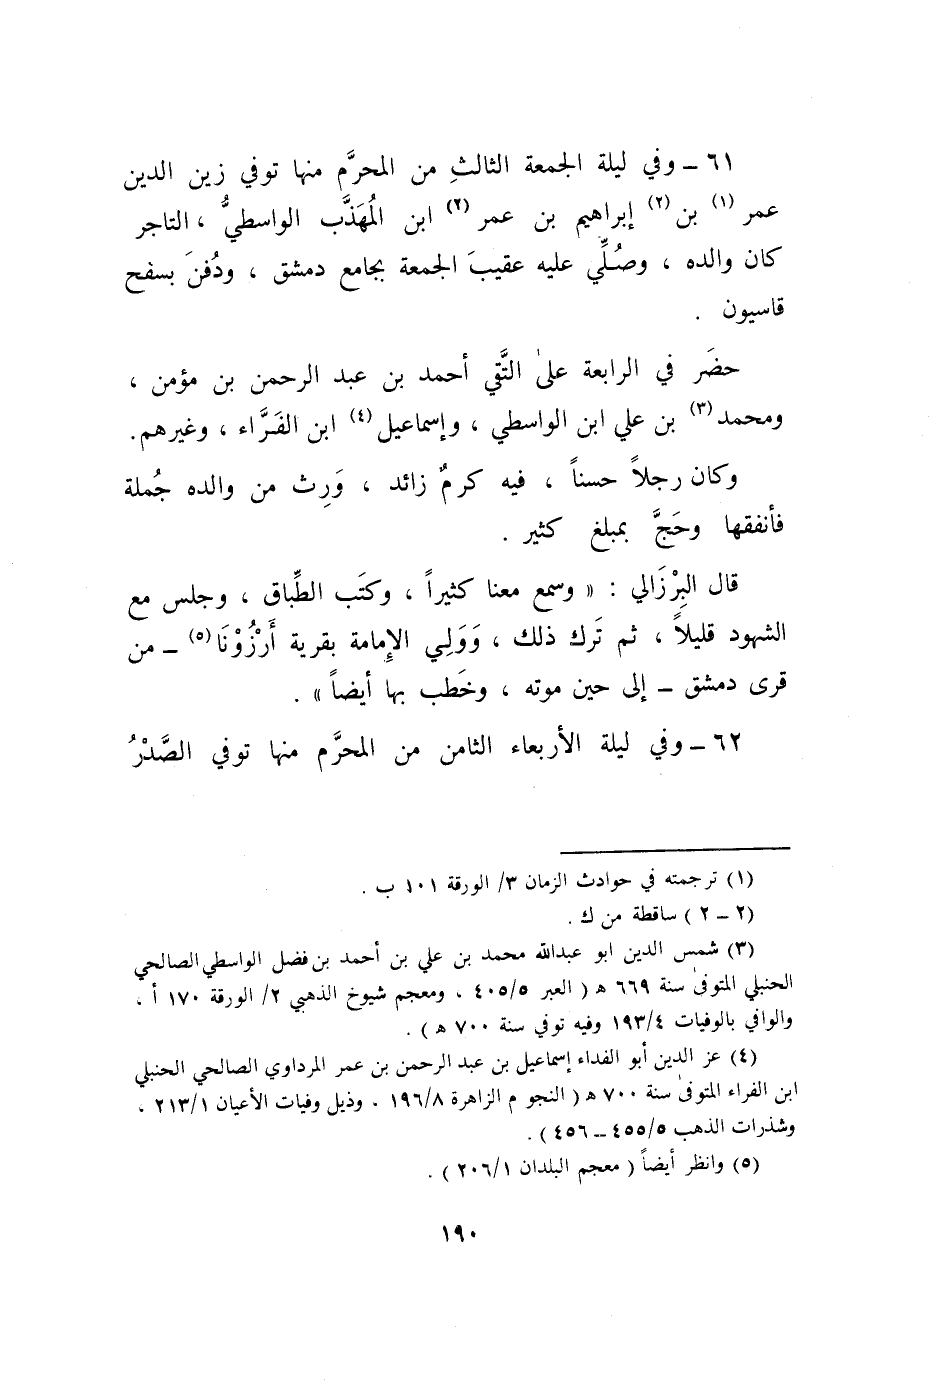 ٦١ ـ وفي ليلة الجمعة الثالثِ من المحرَّم منها توفي زين الدين
عمر (١) بن (٢) إبراهيم بن عمر (٢) ابن المُهَذَّب الواسطيُّ ، التاجر
كان والده ، وصُلِّي عليه عقيبَ الجمعة بجامع دمشق ، ودُفنَ بسفح
قاسيون .
حضَر في الرابعة علىٰ التَّقي أحمد بن عبد الرحمن بن مؤمن ،
ومحمد (٣) بن علي ابن الواسطي ، وإسماعيل (٤) ابن الفَرَّاء ، وغيرهم.
وكان رجلاً حسناً ، فيه كرمٌ زائد ، وَرِث من والده جُملة
فأنفقها وحَجَّ بمبلغ كثير .
قال البِرْزَالي : « وسمع معنا كثيراً ، وكتَب الطِّباق ، وجلس مع
الشهود قليلاً ، ثم تَرك ذلك ، وَوَلِي الإِمامة بقرية أَرْزُوْنَا (٥) ـ من
قرى دمشق ـ إلى حين موته ، وخَطب بها أيضاً » .
٦٢ ـ وفي ليلة الأربعاء الثامن من المحرَّم منها توفي الصَّدْرُ
(١) ترجمته في حوادث الزمان ٣/ الورقة ١٠١ ب .
(٢ ـ ٢ ) ساقطة من ك .
(٣) شمس الدين ابو عبدالله محمد بن علي بن أحمد بن فضل الواسطي الصالحي
الحنبلي المتوفىٰ سنة ٦٦٩ ه ( العبر ٤٠٥/٥ ، ومعجم شيوخ الذهبي ٢/ الورقة ١٧٠ أ ،
والوافي بالوفيات ١٩٣/٤ وفيه توفي سنة ٧٠٠ ه ) .
(٤) عز الدين أبو الفداء إسماعيل بن عبد الرحمن بن عمر المرداوي الصالحي الحنبلي
ابن الفراء المتوفىٰ سنة ٧٠٠ ه ( النجو م الزاهرة ١٩٦/٨ . وذيل وفيات الأعيان ٢١٣/١ ،
وشذرات الذهب ٤٥٥/٥ ــ ٤٥٦ ) .
(٥) وانظر أيضاً ( معجم البلدان ٢٠٦/١ ) .
١٩٠